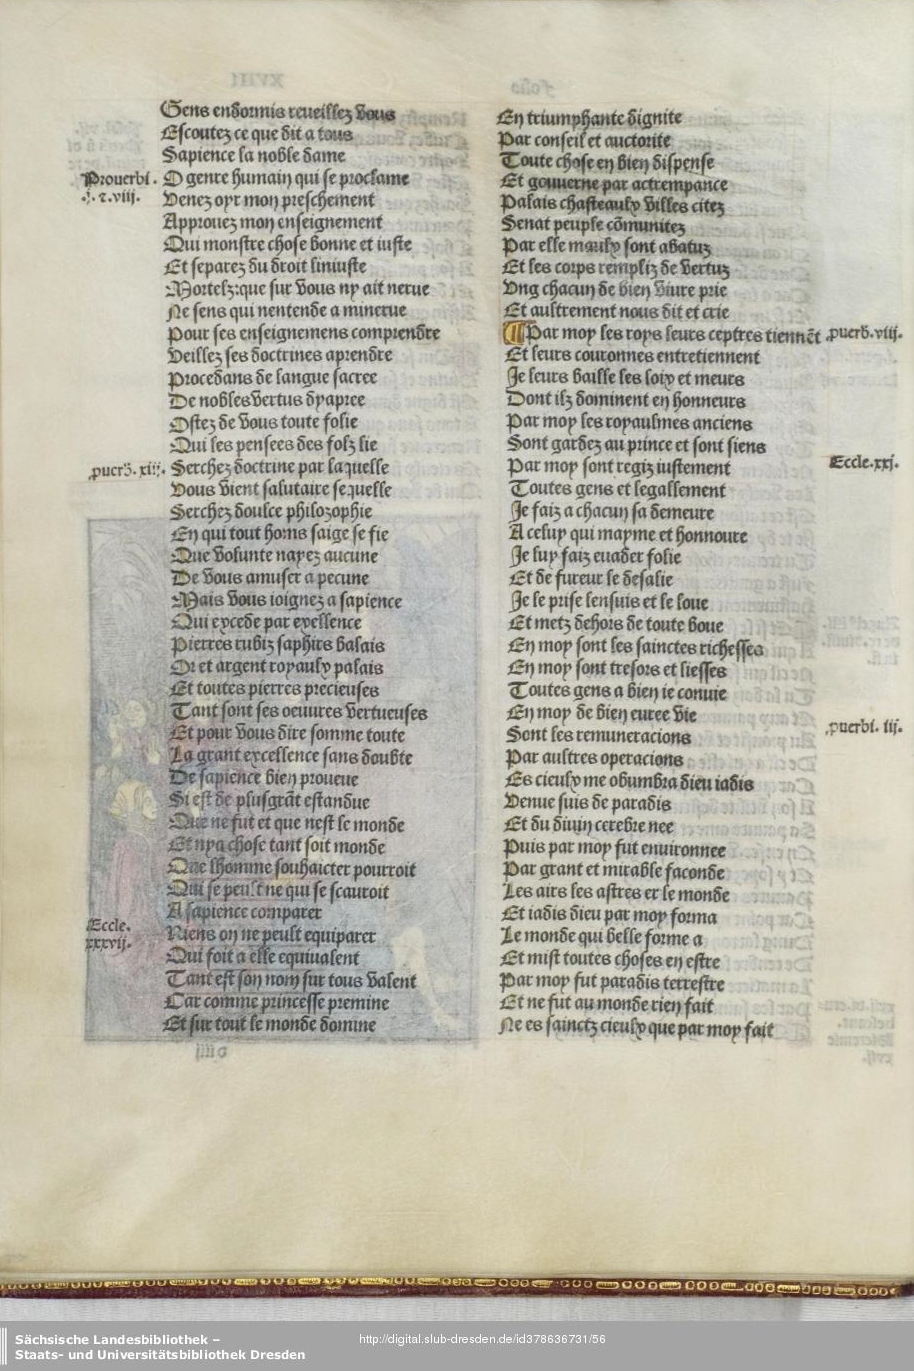 Gens endormis reueillez vous
Escoutez ce que dit a tous
Sapience la noble dame
Prouerbi.
.j. z. viij.
O genre humain qui se proclame
Venez oyr mon preschement
Approuez mon enseignement
Qui monstre chose bonne et iuste
Et separez du droit liniuste
Mortelz: que sur vous ny ait nerue
Ne sens qui nentende a minerue
Pour ses enseignemens comprendre
Veillez ses doctrines aprendre
Procedans de langue sacree
De nobles vertus dyapree
Ostez de vous toute folie
Qui les pensees des folz lie
puerb. xiij.
Serchez doctrine par laquelle
Vous vient salutaire sequelle
Serchez doulce philozophie
En qui tout homs saige se fie
Que volunte nayez aucune
De vous amuser a pecune
Mais vous ioignez a sapience
Qui excede par excellence
Pierres rubiz saphirs balais
Or et argent royaulx palais
Et toutes pierres precieuses
Tant sont ses oeuures vertueuses
Et pour vous dire somme toute
La grant excellence sans doubte
De sapience bien proueue
Si est de plusgrāt estandue
Que ne fut et que nest le monde
Et nya chose tant soit monde
Que lhomme souhaicter pourroit
Qui se peult ne qui se scauroit
A sapience comparer
Eccle.
xxxvij.
Riens on ne peult equiparer
Qui soit a elle equiualent
Tant est son nom sur tous valent
Car comme princesse premine
Et sur tout le monde domine
En triumphante dignite
Par conseil et auctorite
Toute chose en bien dispense
Et gouuerne par actrempance
Palais chasteaulx villes citez
Senat peuple cōmunitez
Par elle maulx sont abatuz
Et les corps rempliz de vertuz
Ung chacun de bien viure prie
Et aultrement nous dit et crie
¶ Par moy les roys leurs ceptres tiennēt
puerb. viij.
Et leurs couronnes entretiennent
Je leurs baille les loix et meurs
Dont ilz dominent en honneurs
Par moy les royaulmes anciens
Sont gardez au prince et sont siens
Par moy sont regiz iustement
Eccle. xxj.
Toutes gens et legallement
Je faiz a chacun sa demeure
A celuy qui mayme et honnoure
Je luy faiz euader folie
Et de fureur le deslie
Je le prise lensuis et le loue
Et metz dehors de toute boue
En moy sont les sainctes richesses
En moy sont tresors et liesses
Toutes gens a bien ie conuie
En moy de bien euree vie
puerbi. iij.
Sont les remuneracions
Par aultres operacions
Es cieulx me obumbra dieu iadis
Venue suis de paradis
Et du diuin cerebre nee
Puis par moy fut enuironnee
Par grant et mirable faconde
Les airs les astres er le monde
Et iadis dieu par moy forma
Le monde qui belle forme a
Et mist toutes choses en estre
Par moy fut paradis terrestre
Et ne fut au monde rien fait
Ne es sainctz cieulx que par moy fait
Sächsische Landesbibliothek –
Staats- und Universitätsbibliothek Dresden
http://digital.slub-dresden.de/id378636731/56